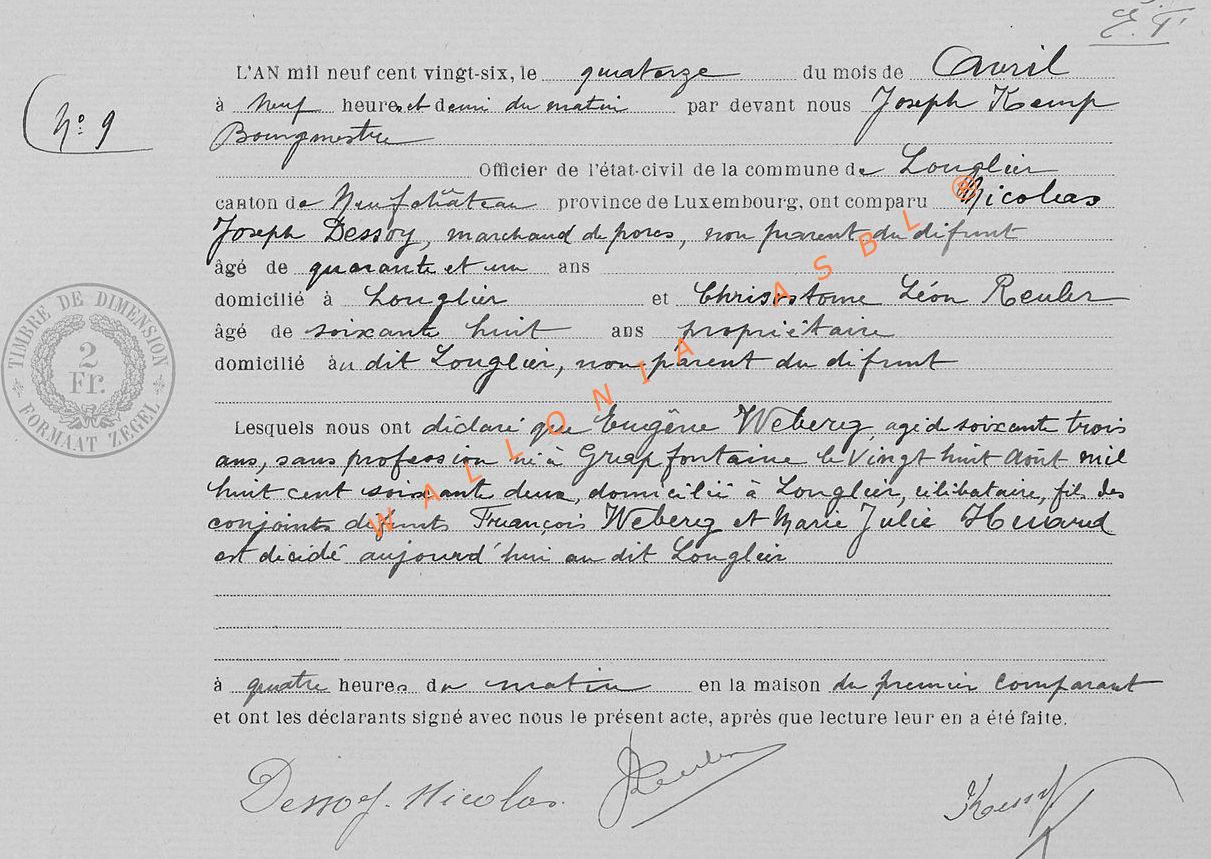 E. T.
L'AN mil neuf cent vingt-six, le quatorze du mois de Avril
No 9
à neuf heures et demi du matin par devant nous Joseph Kemp
Bourgmestre
Officier de l'état-civil de la commune de Longlier
canton de Neufchâteau province de Luxembourg, ont comparu Nicolas
Joseph Dessoy, marchand de porcs, non parent du défunt
âgé de quarante et un ans
domicilié à Longlier et Chrisostome Léon Reuler
âgé de soixante huit ans propriétaire
domicilié au dit Longlier, non parent du défunt
TIMBRE DE DIMENSION
2
Fr.
FORMAAT ZEGEL
Lesquels nous ont déclaré que Eugène Weberg, agé de soixante trois
ans, sans profession né à Grapfontaine le vingt huit Août mil
huit cent soixante deux, domicilié à Longlier, célibataire, fils des
conjoints défunts François Weberg et Marie Julie Huard
est décédé aujourd'hui au dit Longlier
à quatre heures du matin en la maison du premier comparant
et ont les déclarants signé avec nous le présent acte, après que lecture leur en a été faite.
Dessoy. Nicolas. Reuler Kemp
WALLONIA ASBL ®